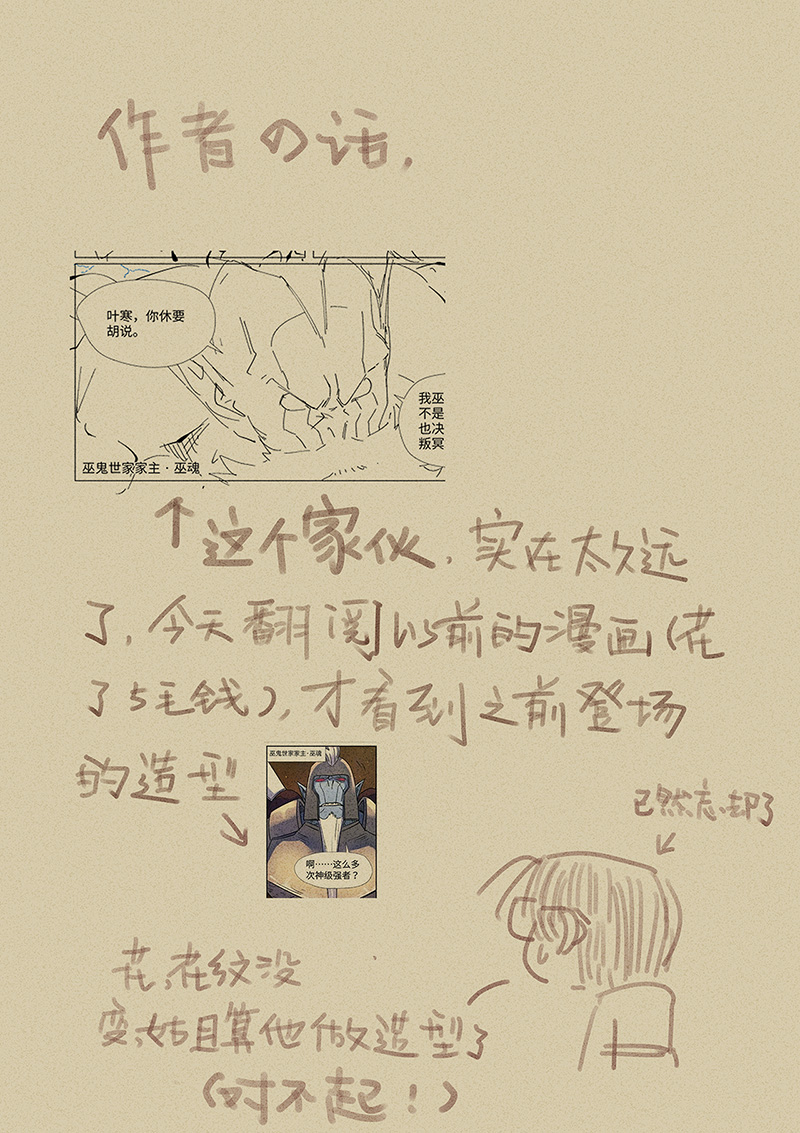 作者の话,
叶寒，你休要
胡说。
我巫
不是
也决
叛冥
巫鬼世家家主·巫魂
↑这个家伙,实在太久远
了,今天翻阅以前的漫画(花
了5毛钱),才看到之前登场
的造型
巫鬼世家家主·巫魂
啊……这么多
次神级强者？
已然忘却了
花,花纹没
变,姑且算他做造型了
(对不起！)